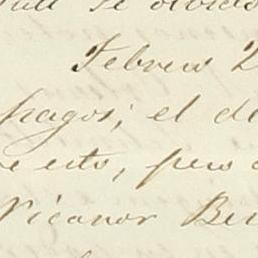 se olvida
Febrero 2
pagos; el d
e esto, pero
Nicanor Be